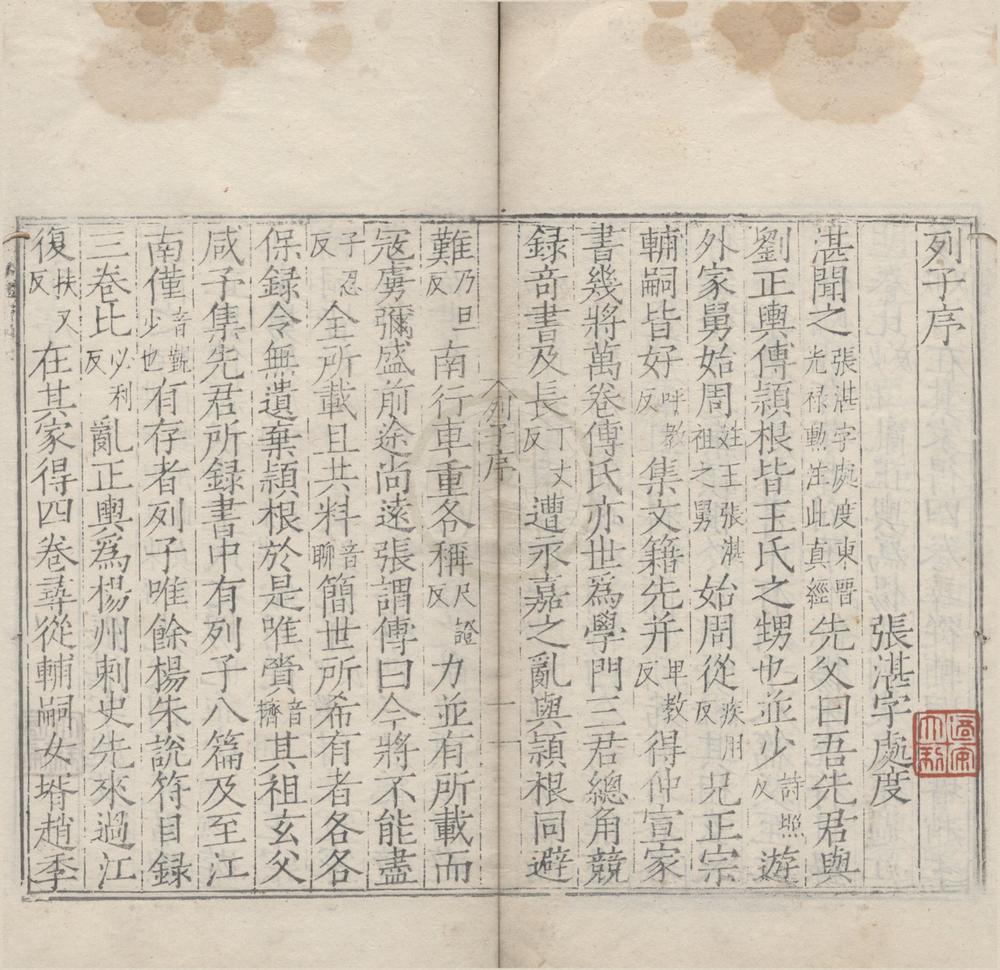 列子序
張湛字處度
湛聞之張湛字處度東晉光祿勳注此真經先父曰吾先君與
劉正輿傅穎根皆王氏之甥也並少詩照反遊
外家舅始周姓王張湛祖之舅始周從疾用反兄正宗
輔嗣皆好呼教反集文籍先并卑教反得仲宣家
書幾將萬卷傅氏亦世為學門三君總角競
録竒書及長丁丈反遭永嘉之亂與穎根同避
列子序
一
難乃旦反南行車重各稱尺證反力並有所載而
寇虜彌盛前途尚遠張謂傅曰今將不能盡
子忍反全所載且共料音聊簡世所希有者各各
保録令無遺棄穎根於是唯賷音擠其祖玄父
咸子集先君所録書中有列子八篇及至江
南僅音覲少也有存者列子唯餘楊朱說符目録
三卷比必利反亂正輿爲楊州刺史先來過江
復扶又反在其家得四卷尋從輔嗣女壻趙季